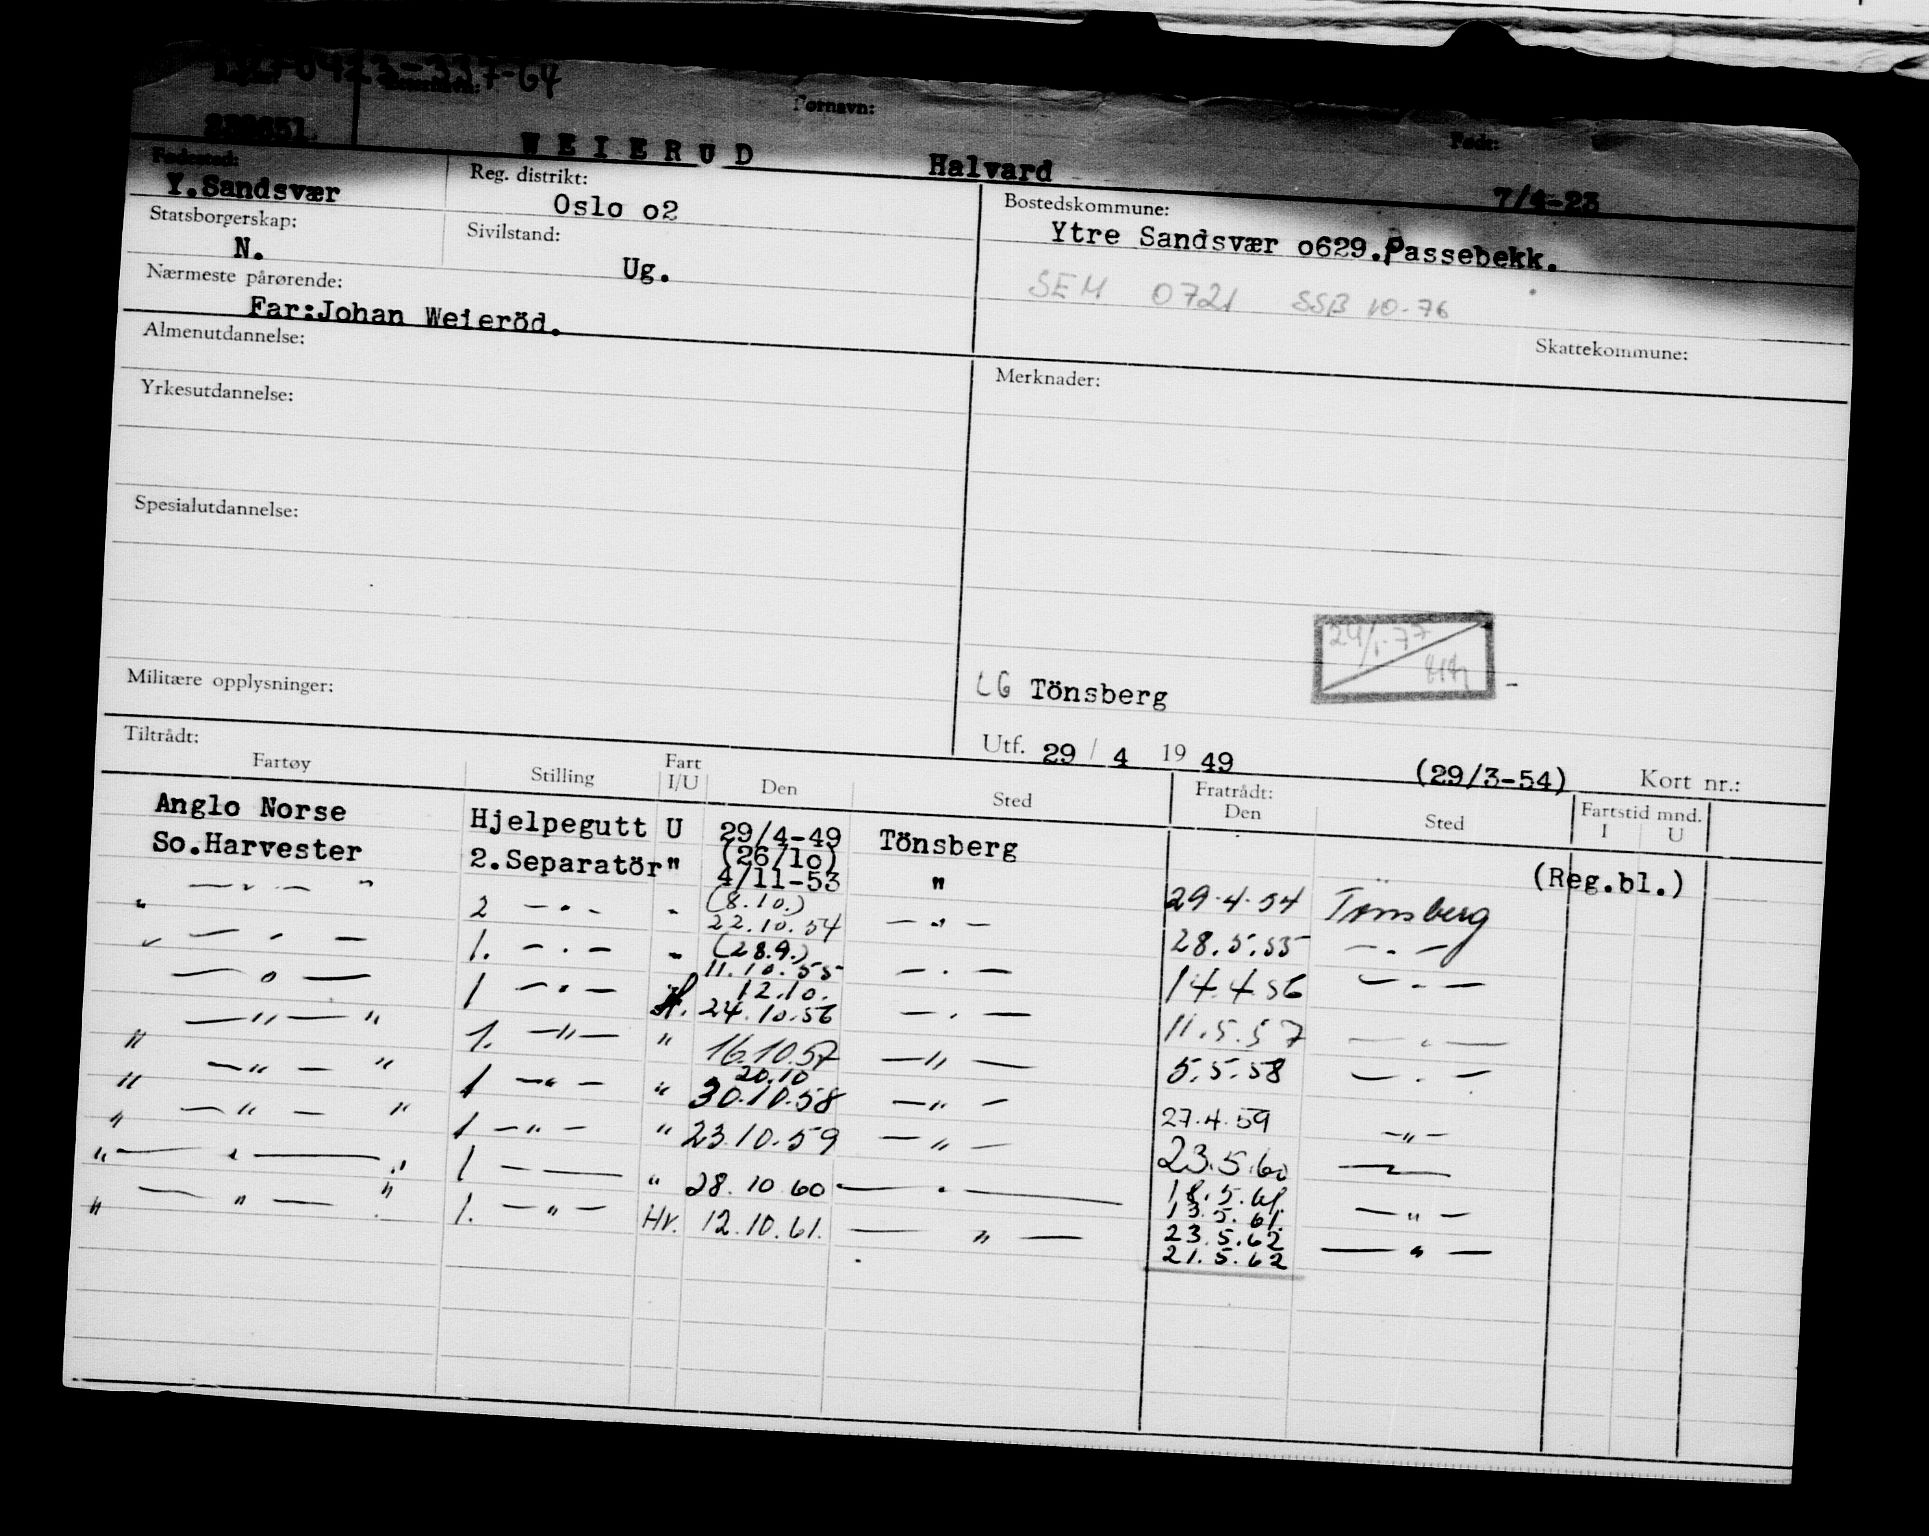 0423-337-64
Fornavn: Født:
WEIERUD Halvard 7/4-23
Fødested: Reg. distrikt: Bostedskommune:
Y.Sandsvær Oslo o2 Ytre Sandsvær o629.Passebekk.
Statsborgerskap: Sivilstand:
N. Ug. SEM 0721 SSB 10-76
Nærmeste pårørende:
Far:Johan Weieröd.
Skattekommune:
Almenutdannelse: Merknader:
Yrkesutdannelse:
Spesialutdannelse:
24/1-77
Militære opplysninger: LG Tönsberg
Utf. 29 / 4 19 49 (29/3-54) Kort nr.:
Tiltrådt: Fratrådt: Fartstid mnd.
Fartøy Stilling Fart I/U Den Sted Den Sted I U
Anglo Norse Hjelpegutt U 29/4-49 Tönsberg
(Reg.bl.)
So.Harvester 2.Separatör " (26/1o) 4/11-53 " 29.4.54 Tønsberg
" — " — " 2 — " — " (8.10.) 22.10.54 — " — 28.5.55 — " —
" — " — 1. — " — " (28.9.) 11.10.55 — " — 14.4.56 — " —
— " — 1 — " — 12.10. 24.10.56 — " — 11.5.57 — " —
— " — " 1. — " — " 16.10.57 — " — 5.5.58 — " —
" — " — " 1 — " — " 20.10 30.10.58 — " — 27.4.59 — " —
" — " — " 1 — " — " 23.10.59 — " — 23.5.60 — " —
" — " — " 1 — — " 28.10.60 — " — 18.5.61. 13.5.61. — " —
" — " — " 1. — " — Hv. 12.10.61. — " — 23.5.62 21.5.62 — " —